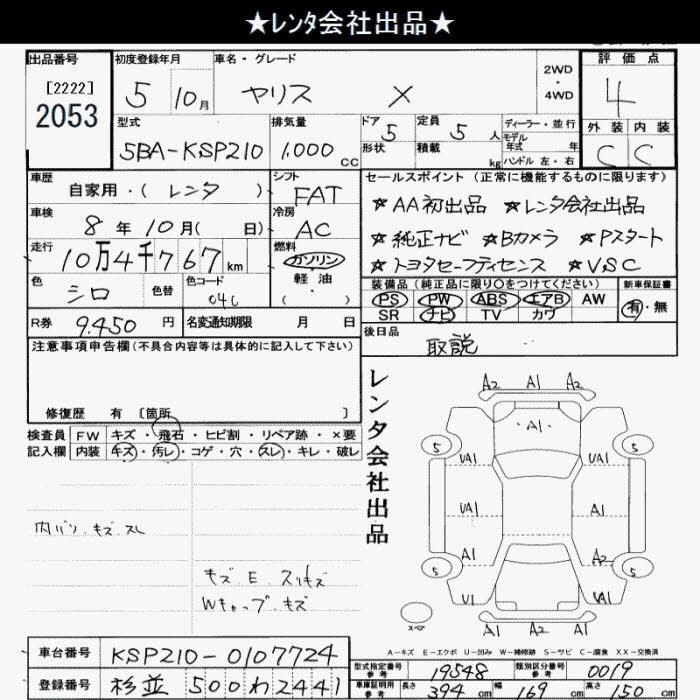 ★レンタ会社出品★
出品番号
[2222]
2053
初度登録年月
5 10月
車名・グレード
ヤリス X
2WD
・
4WD
評価点
4
外装 内装
C C
型式
5BA-KSP210
排気量
1,000 cc
ドア 5
形状
定員 5 人
積載 kg
ディーラー・並行
モデル
年式 年
ハンドル 左・右
車歴
自家用・( レンタ )
車検
8 年 10 月( 日)
走行
10万4千767 km
色
シロ
色替
色コード
040
シフト
FAT
冷房
AC
燃料
ガソリン
・
軽油
( ・ )
R券 9,450 円
名変通知期限 月 日
セールスポイント (正常に機能するものに限ります)
★AA初出品 ★レンタ会社出品
★純正ナビ ★Bカメラ ★Pスタート
★トヨタセーフティセンス ★VSC
装備品(純正品に限り○をつけてください)
PS PW ABS エアB AW
SR ナビ TV カワ
新車保証書
有・無
後日品
取説
注意事項申告欄(不具合内容等は具体的に記入して下さい)
修復歴 有 [箇所 ]
検査員
記入欄
FW キズ・飛石・ヒビ割・リペア跡・×要
内装 キズ・汚レ・コゲ・穴・スレ・キレ・破レ
内バリ.キズ.スレ
キズ E スリキズ
Wキャップ.キズ
レンタ会社出品
A2 A1 A2
・A1
5 5
UA1 UA1
UA1 A1
A1 A2
5 5
U1 A1
A1 A1 A2
スペア
A－キズ E－エクボ U－凹み W－補修跡 S－サビ C－腐食 XX－交換済
車台番号 KSP210-0107724
登録番号 杉並 500わ2441
型式指定番号
参考
19548
類別区分番号
参考
0019
車庫証明用
参考
長さ 394 cm 幅 169 cm 高さ 150 cm